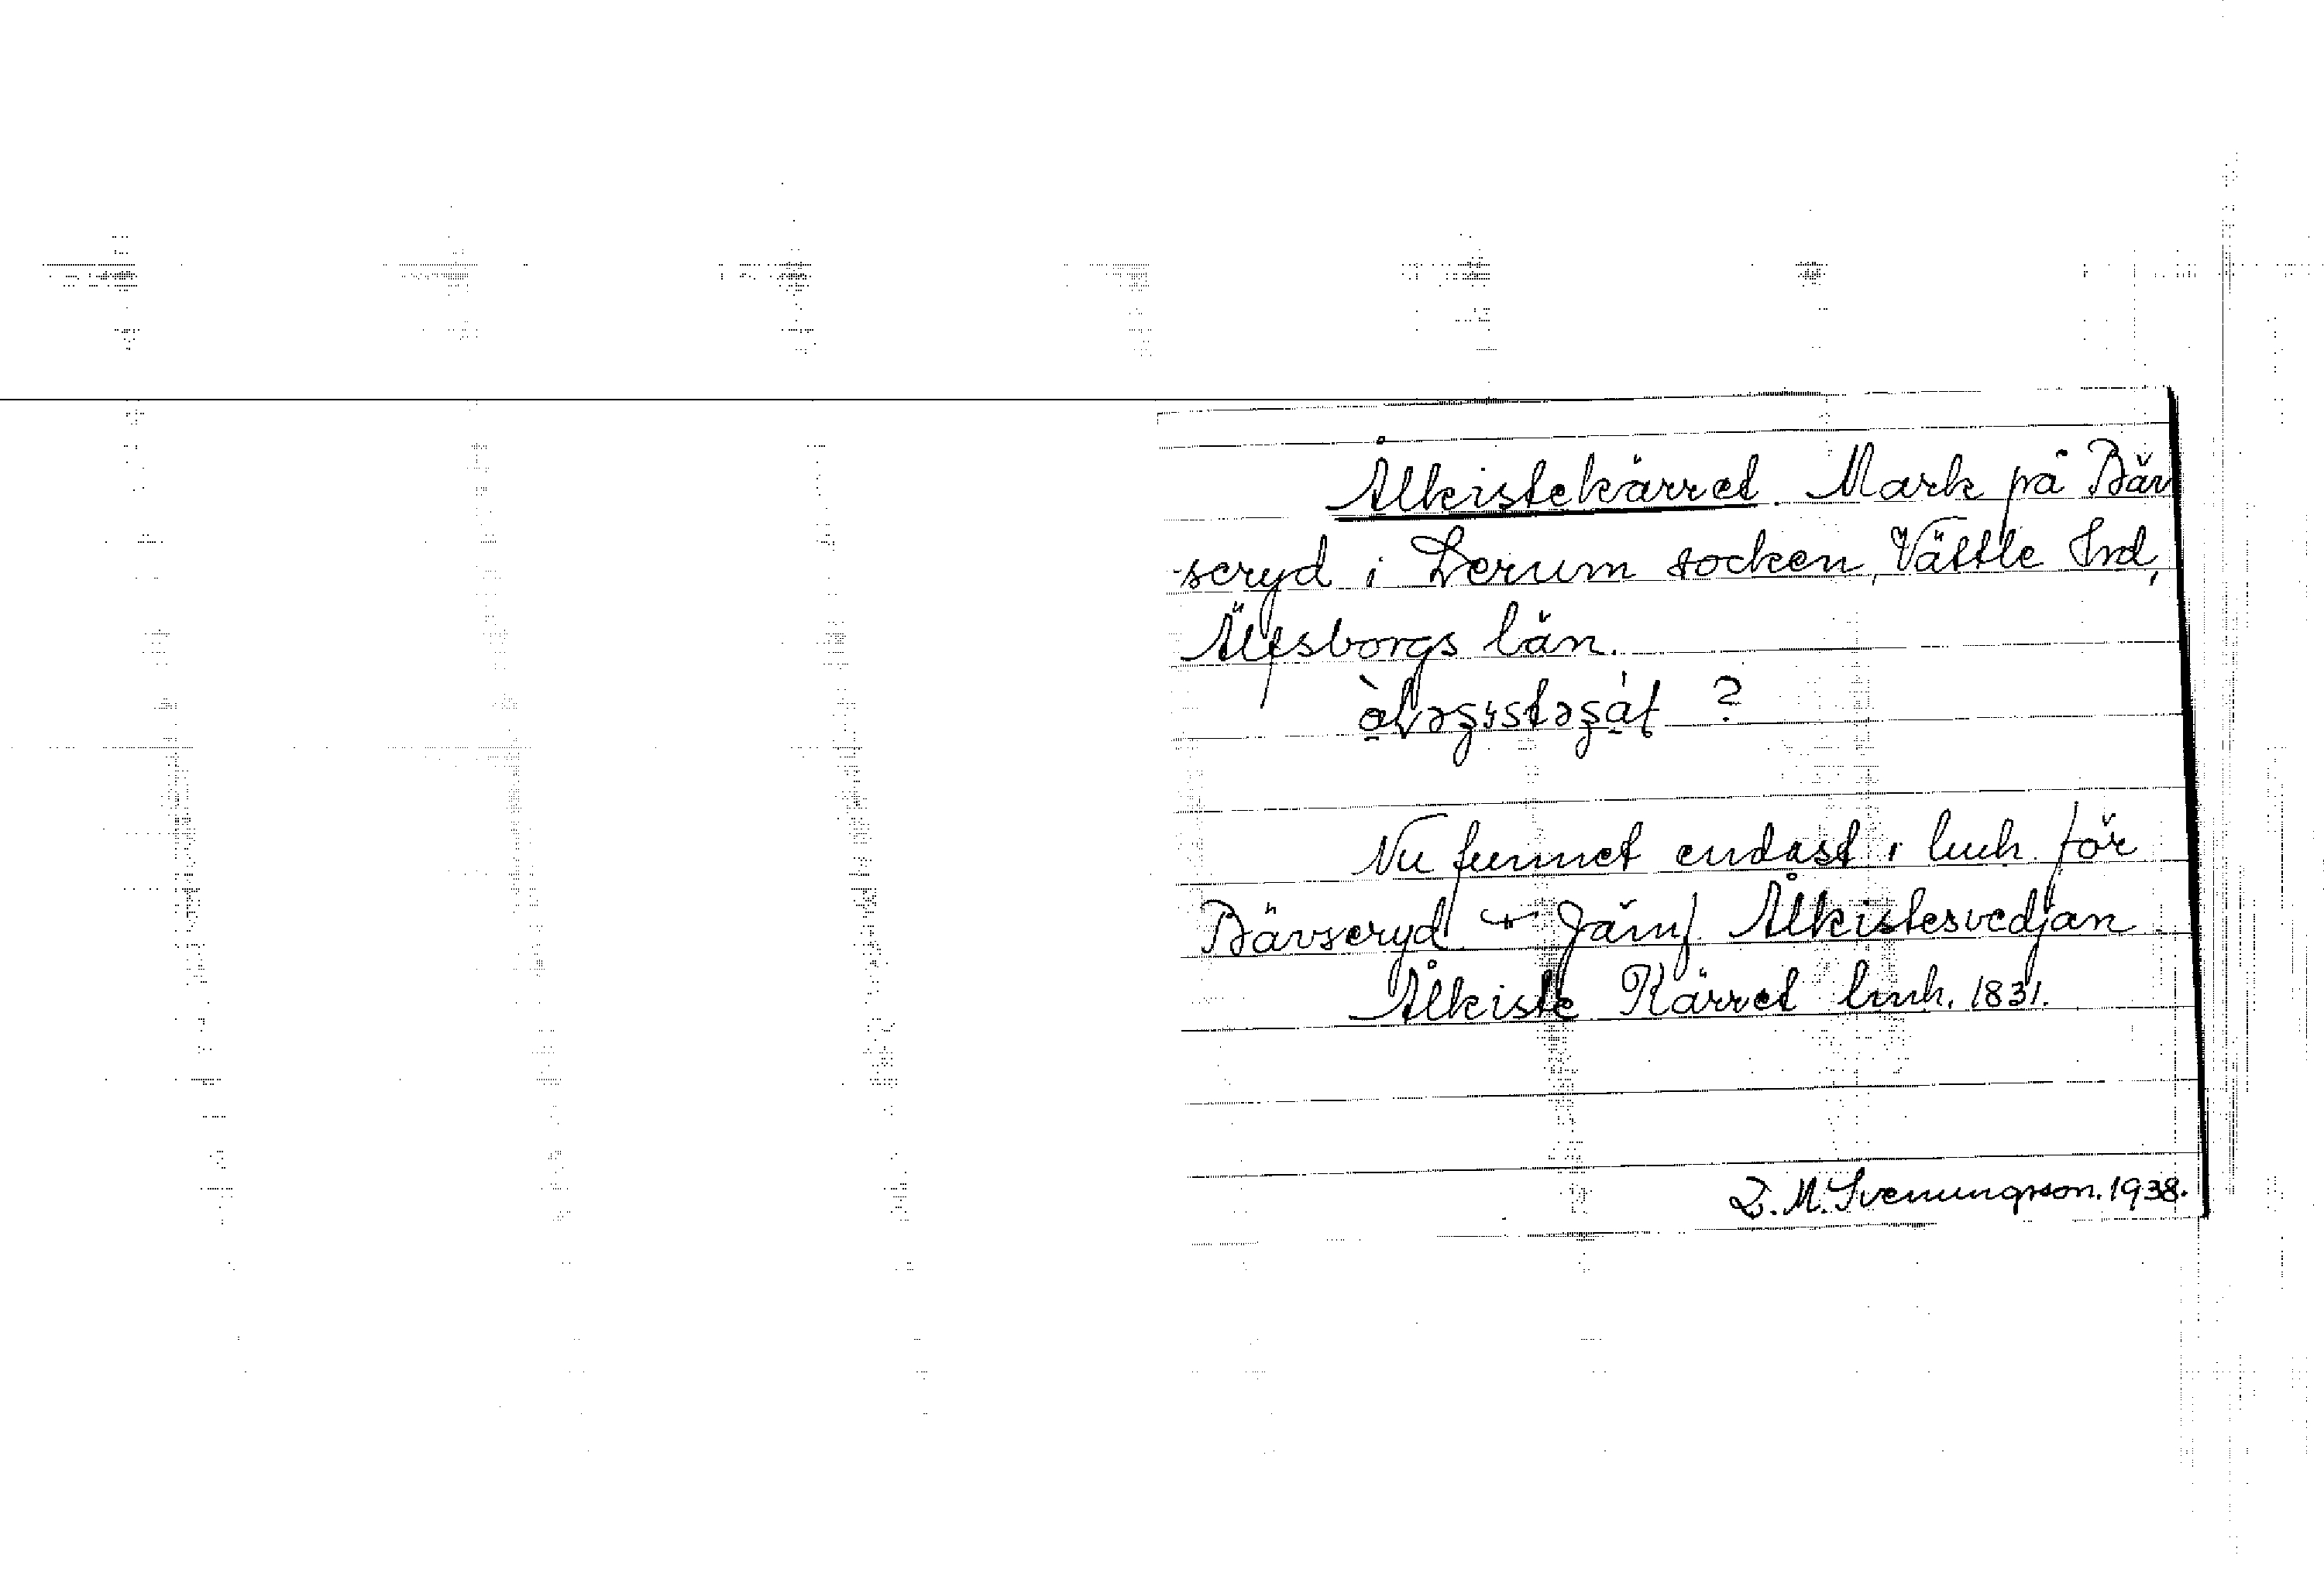 Ålkistekärret. Mark på Bäv
-seryd i Lerum socken, Vättle hrd,
Älfsborgs län.
?
Nu funnet endast i lmh. för
Bävseryd. Jämf. Ålkistesvedjan
Ålkiste Kärret lmh. 1831.
D. M. Svenungsson. 1938.